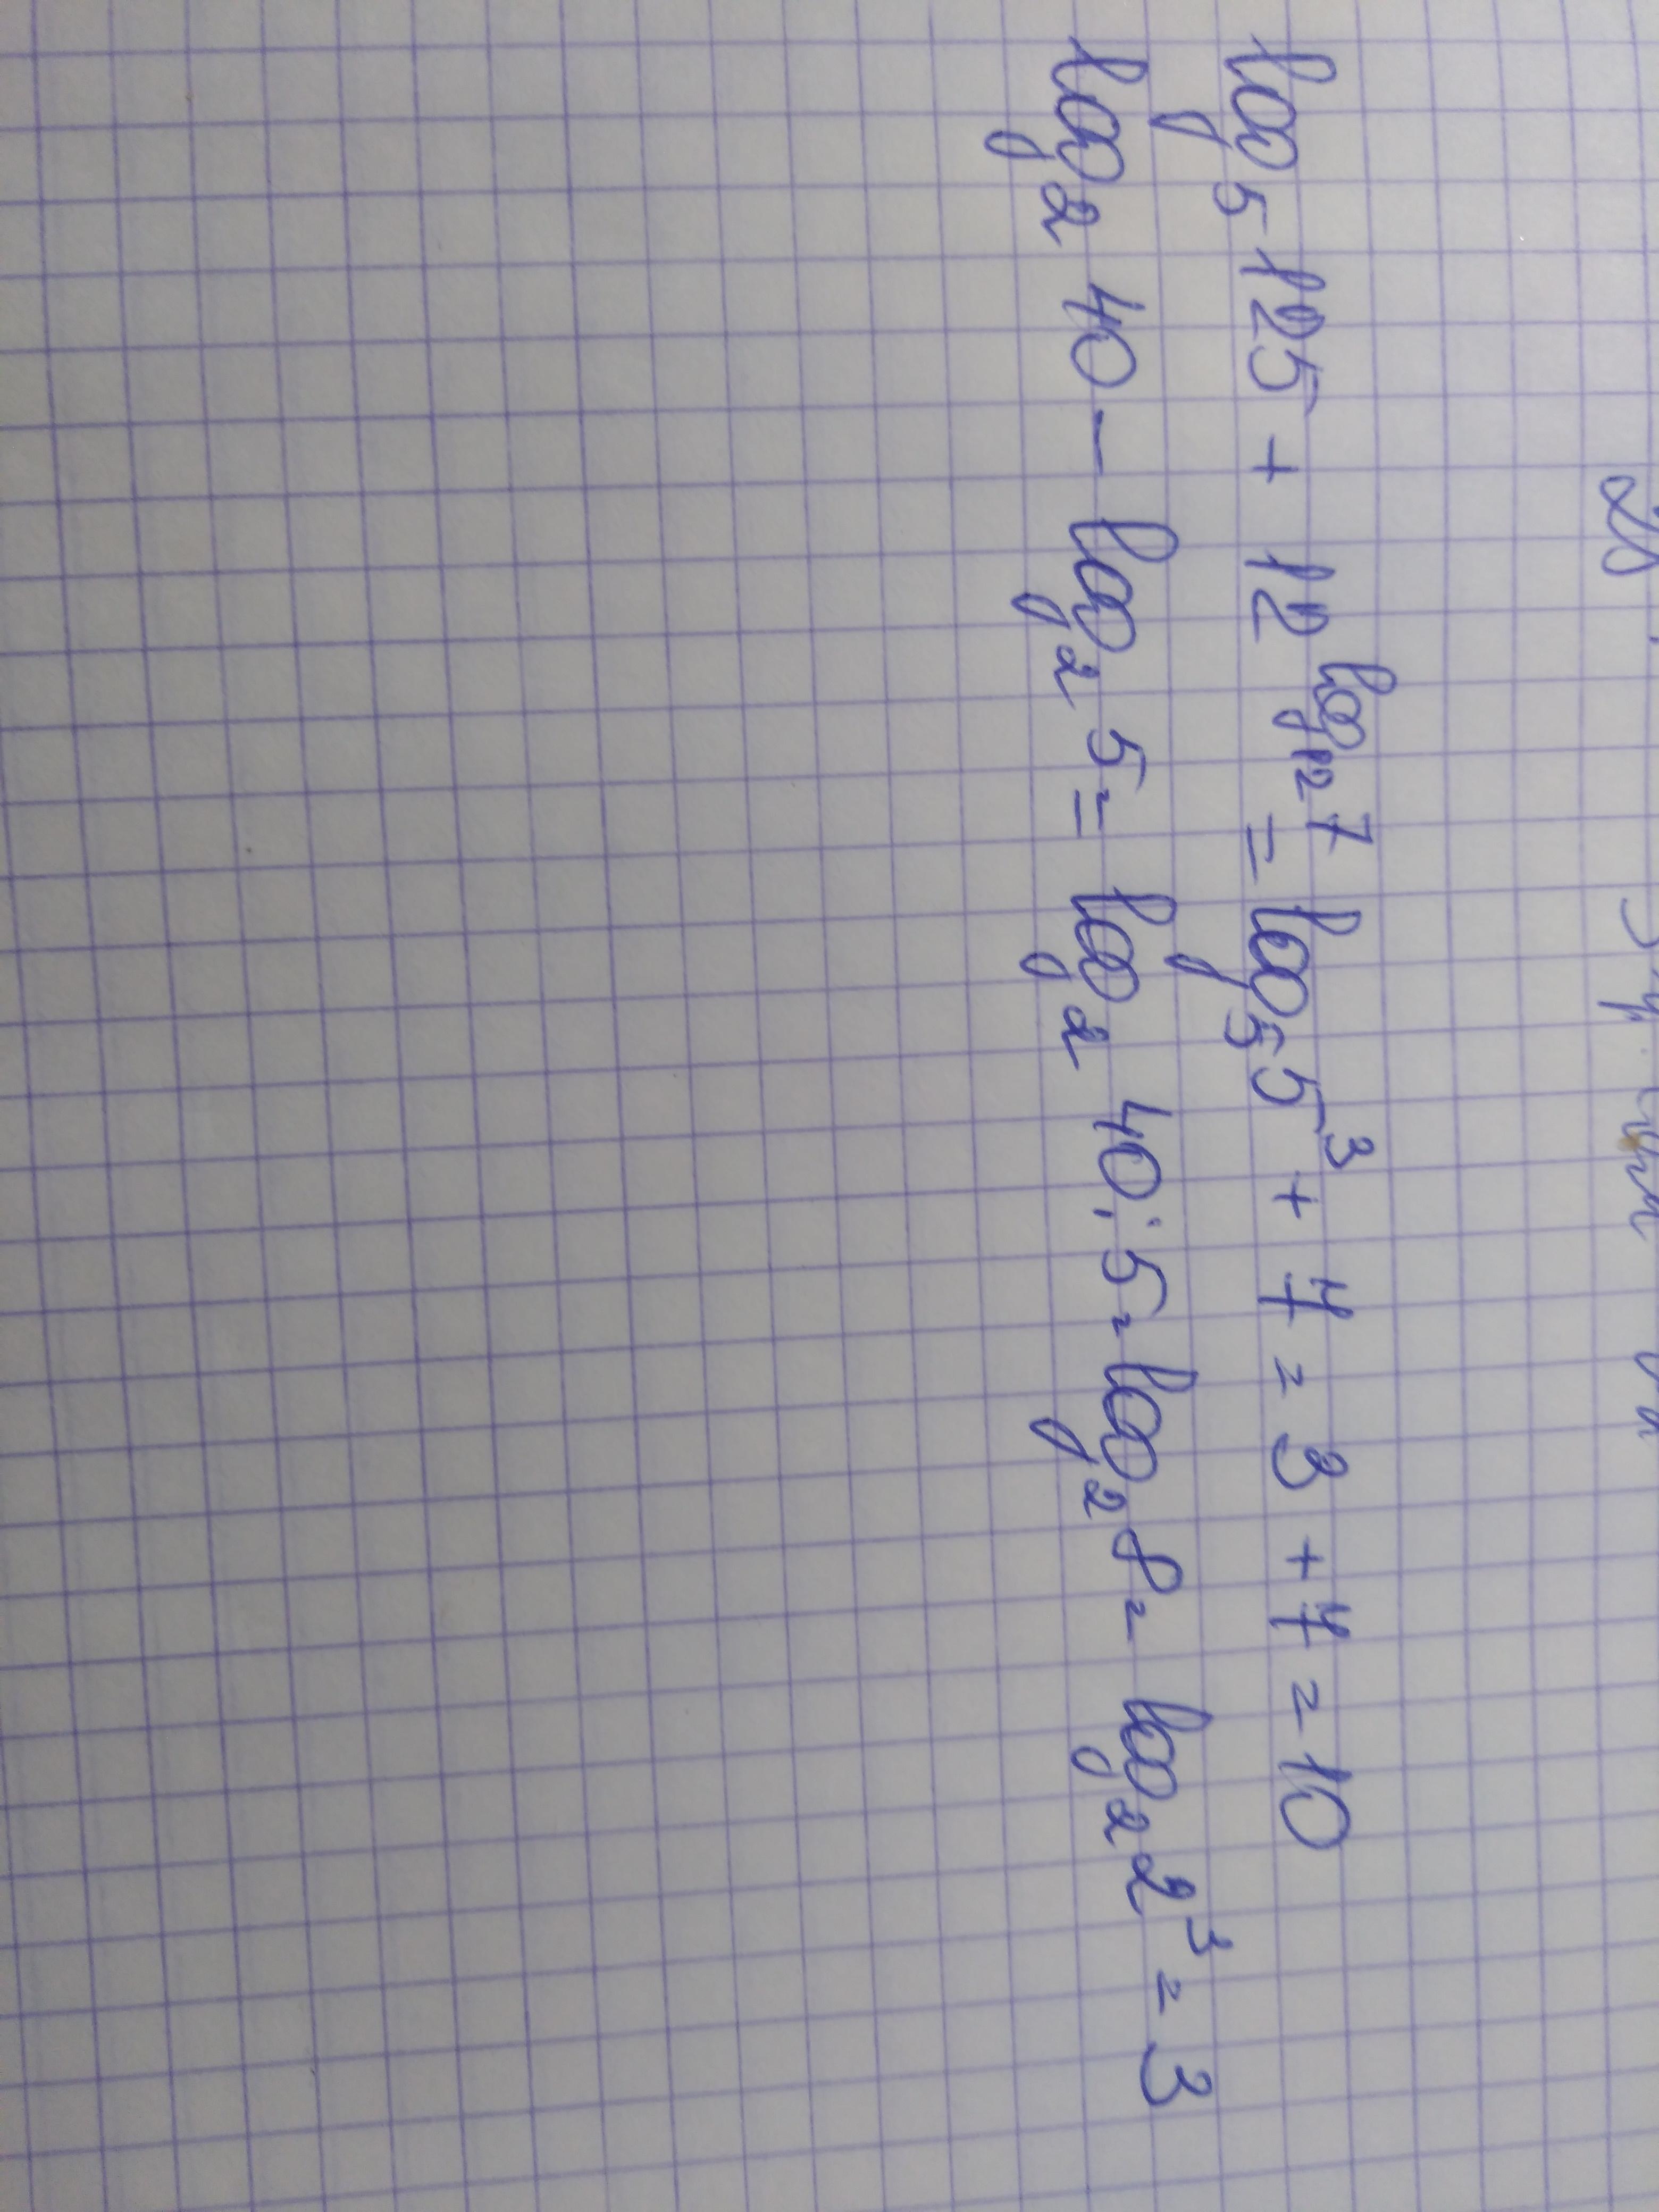 log₅ 125 + 12^(log₁₂ 7) = log₅ 5³ + 7 = 3 + 7 = 10
log₂ 40 − log₂ 5 = log₂ 40 : 5 = log₂ 8 = log₂ 2³ = 3